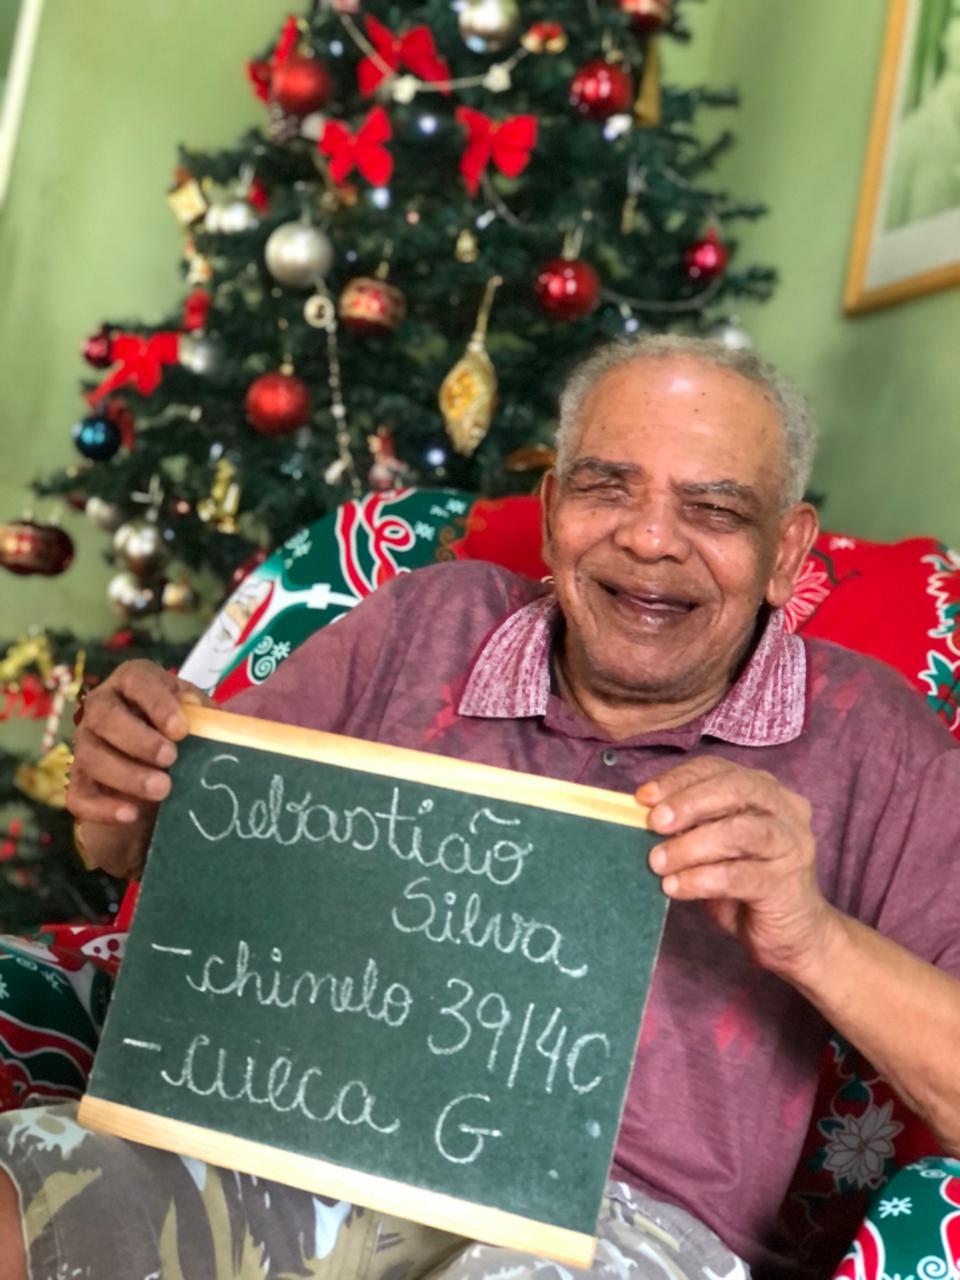 Sebastião
Silva
- chinelo 39/40
- cueca G